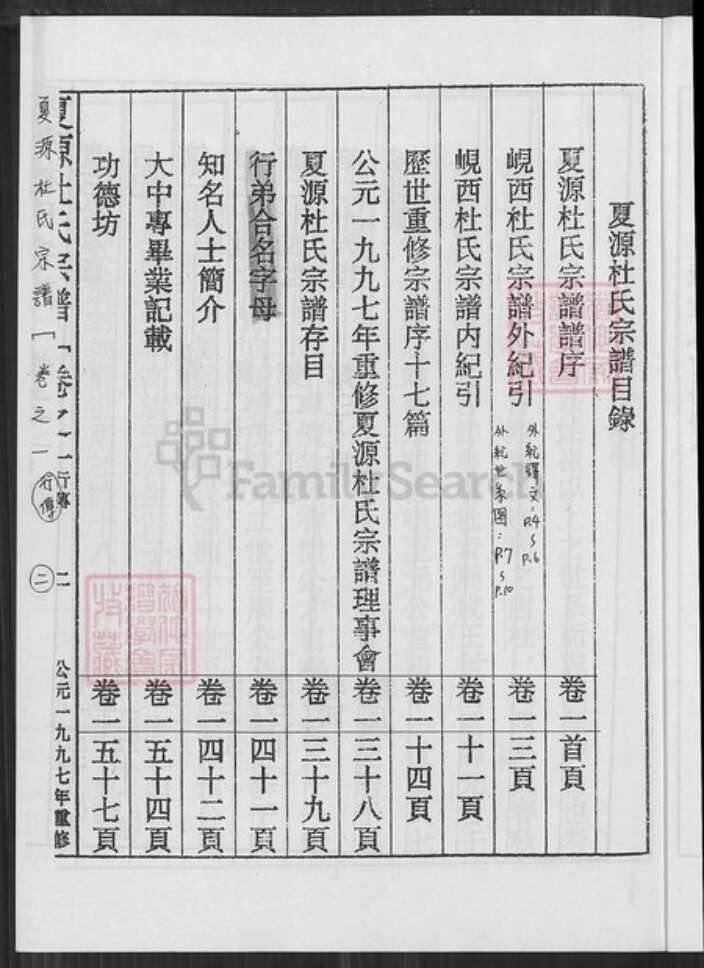 夏源杜氏宗譜目錄
夏源杜氏宗譜譜序 卷一首頁
峴西杜氏宗譜外紀引 卷一三頁
外紀釋文：P.4~P.6
外紀世系圖：P.7~P.10
峴西杜氏宗譜内紀引 卷一十一頁
歷世重修宗譜序十七篇 卷一十四頁
公元一九九七年重修夏源杜氏宗譜理事會 卷一三十八頁
夏源杜氏宗譜存目 卷一三十九頁
行弟合名字母 卷一四十一頁
知名人士簡介 卷一四十二頁
大中專畢業記載 卷一五十四頁
功德坊 卷一五十七頁
夏源杜氏宗譜「卷之一行傳 二 公元一九九七年重修
夏源杜氏宗譜「卷之一 行傳 二
FamilySearch